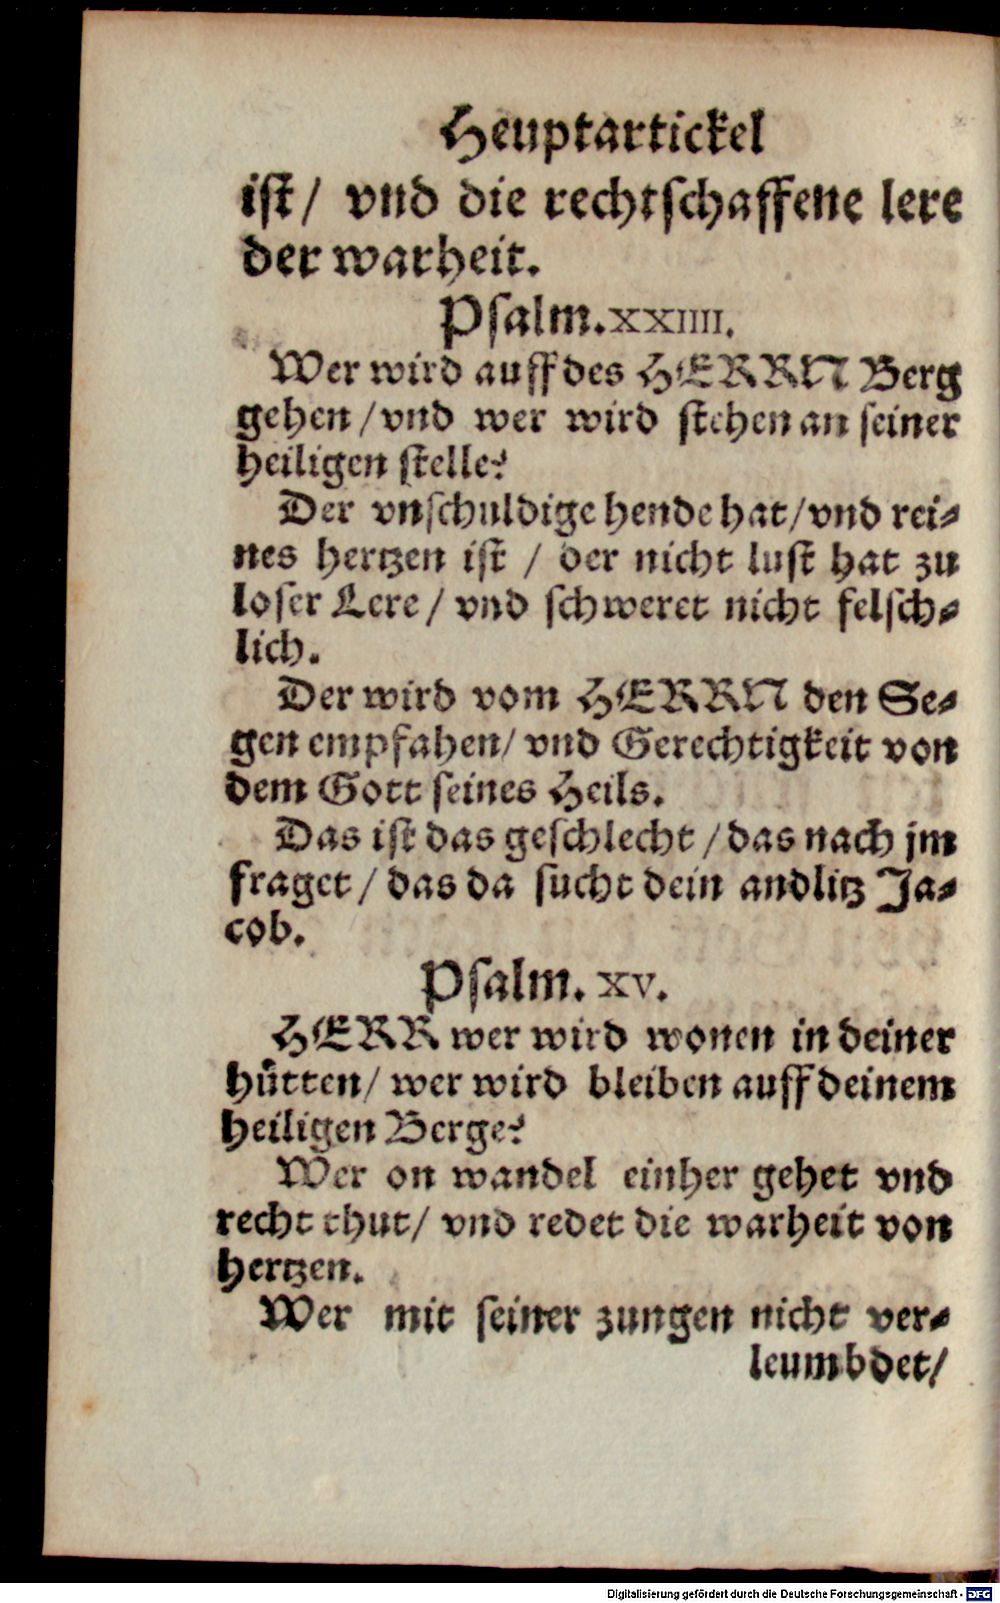 Heuptartickel
ist/ vnd die rechtschaffene lere
der warheit.
Psalm.XXIIII.
Wer wird auff des HERRN Berg
gehen/vnd wer wird stehen an seiner
heiligen stelle?
Der vnschuldige hende hat/vnd rei-
nes hertzen ist / der nicht lust hat zu
loser Lere/ vnd schweret nicht felsch-
lich.
Der wird vom HERRN den Se-
gen empfahen/ vnd Gerechtigkeit von
dem Gott seines Heils.
Das ist das geschlecht /das nach jm
fraget/ das da sucht dein andlitz Ja-
cob.
Psalm. XV.
HERR wer wird wonen in deiner
huͤtten/ wer wird bleiben auff deinem
heiligen Berge?
Wer on wandel einher gehet vnd
recht thut/ vnd redet die warheit von
hertzen.
Wer mit seiner zungen nicht ver-
leumbdet/
Digitalisierung gefördert durch die Deutsche Forschungsgemeinschaft - DFG